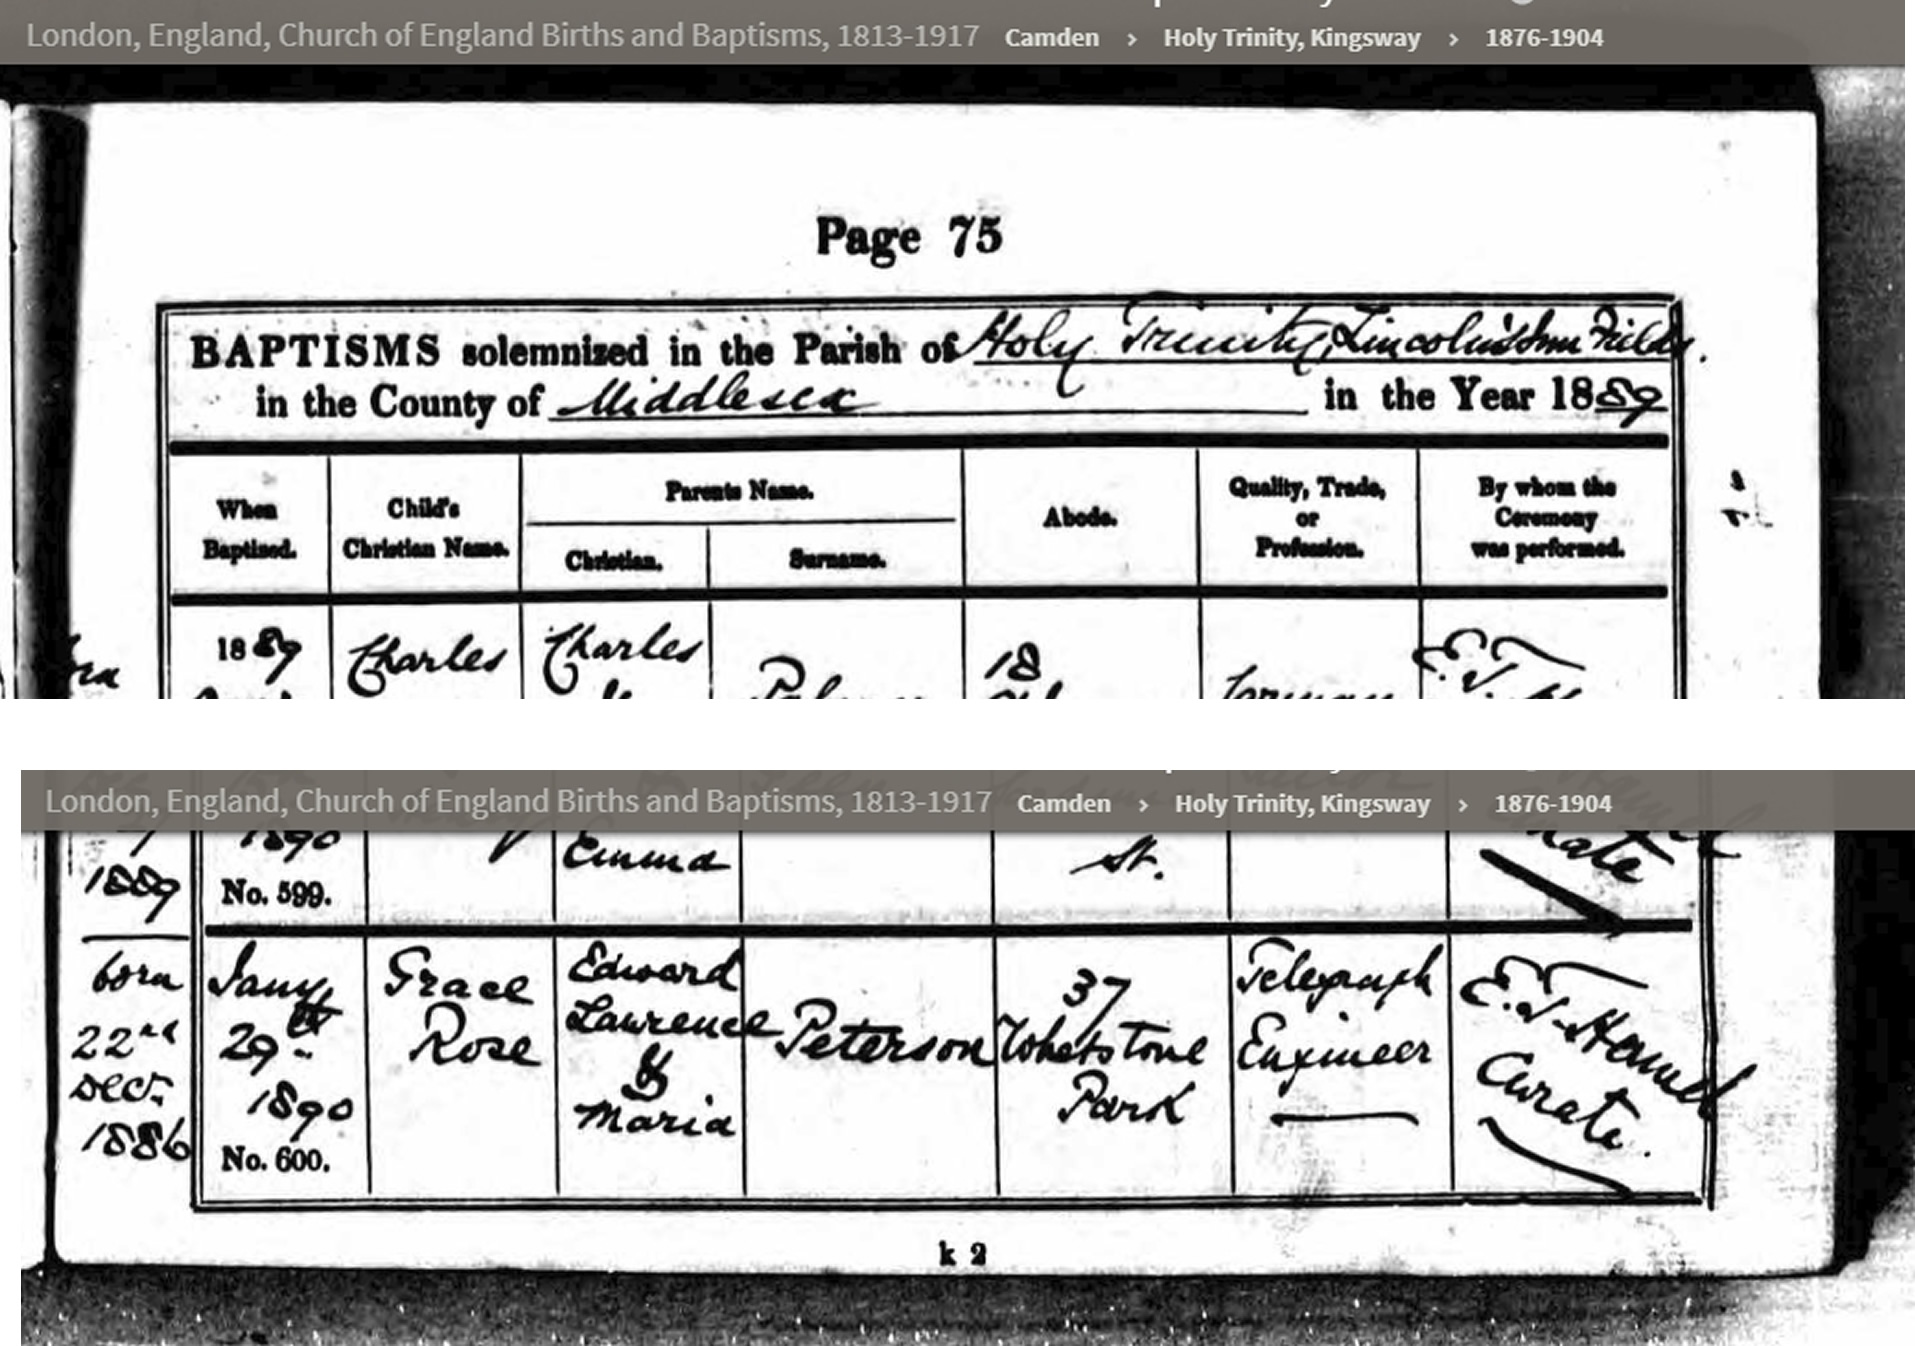 London, England, Church of England Births and Baptisms, 1813-1917 Camden > Holy Trinity, Kingsway > 1876-1904
Page 75
BAPTISMS solemnized in the Parish of Holy Trinity, Lincoln's Inn Fields.
in the County of Middlesex in the Year 1889
When
Baptized.
Child's
Christian Name.
Parents Name.
Christian.
Surname.
Abode.
Quality, Trade,
or
Profession.
By whom the
Ceremony
was performed.
1889
Charles
Charles
18
London, England, Church of England Births and Baptisms, 1813-1917 Camden > Holy Trinity, Kingsway > 1876-1904
1889
1890
No. 599.
Emma
St.
born
22nd
Decr.
1886
Jany
29th
1890
No. 600.
Grace
Rose
Edward
Lawrence
&
Maria
Peterson
37
Whetstone
Park
Telegraph
Engineer
E.T. Hamel
Curate.
k 2